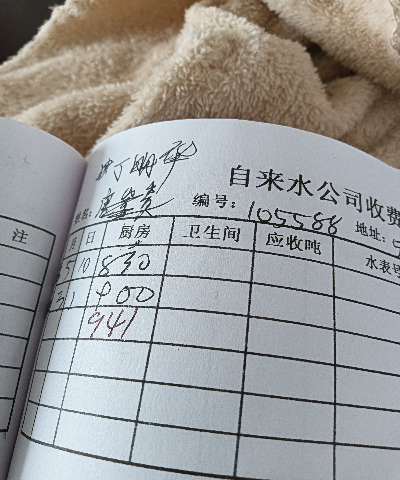 自来水公司收费
编号: 105588 地址:
注 月 日 厨房 卫生间 应收吨 水表号
5 10 830
31 900
941